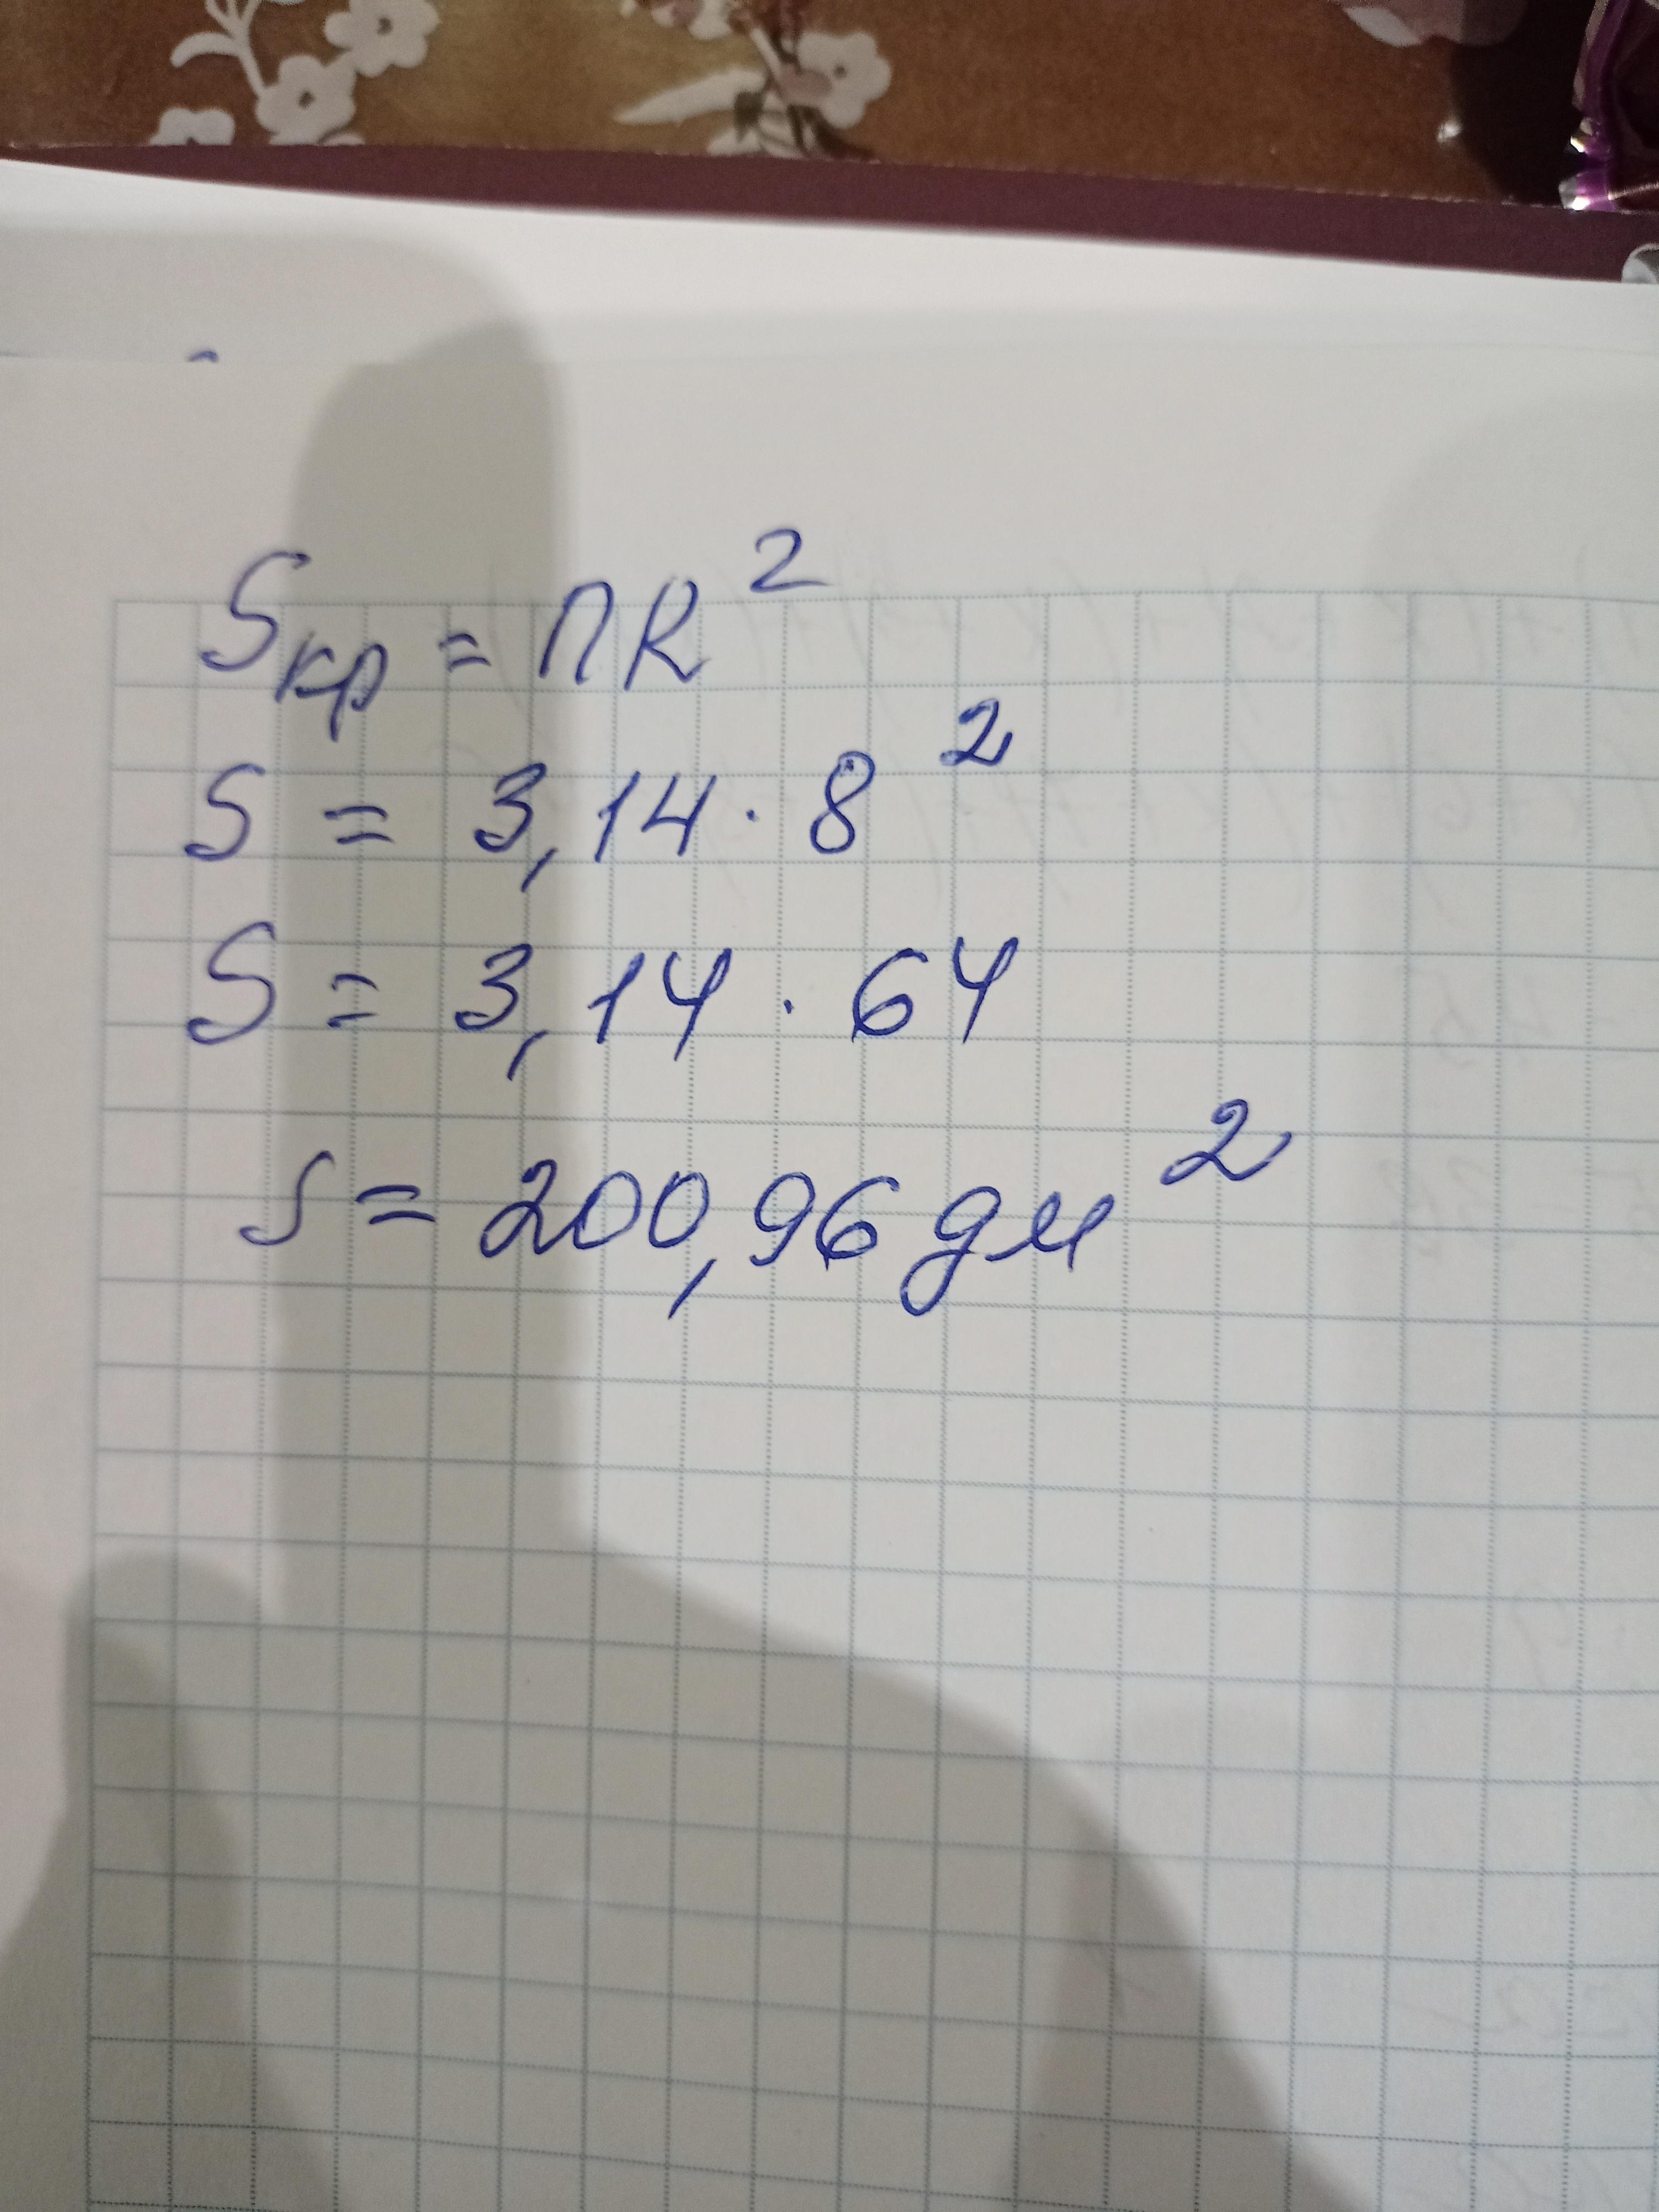 Sкр = πR²
S = 3,14 · 8²
S = 3,14 · 64
S = 200,96 дм²